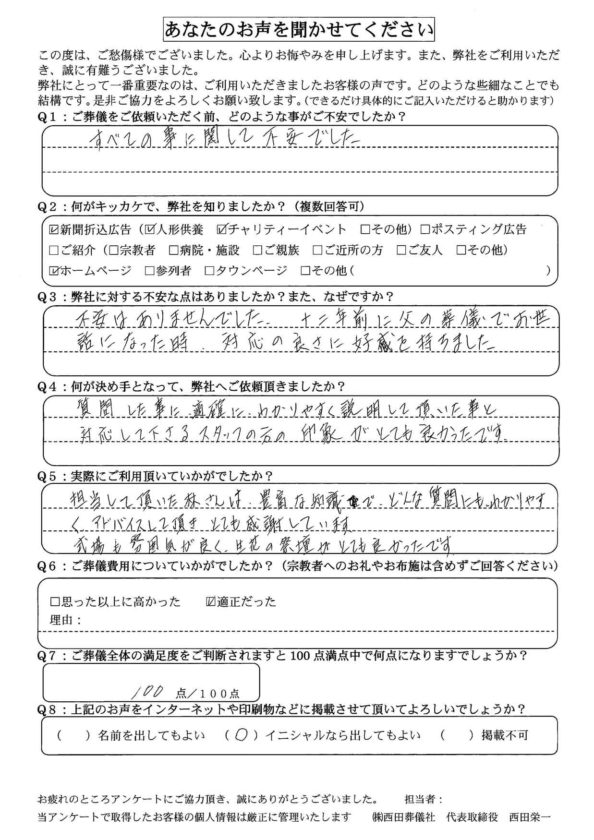 あなたのお声を聞かせてください
この度は、ご愁傷様でございました。心よりお悔やみを申し上げます。また、弊社をご利用いただ
き、誠に有難うございました。
弊社にとって一番重要なのは、ご利用いただきましたお客様の声です。どのような些細なことでも
結構です。是非ご協力をよろしくお願い致します。(できるだけ具体的にご記入いただけると助かります)
Q1:ご葬儀をご依頼いただく前、どのような事がご不安でしたか?
すべての事に関して不安でした
Q2:何がキッカケで、弊社を知りましたか?(複数回答可)
☑新聞折込広告(☑人形供養 ☑チャリティーイベント □その他)□ポスティング広告
□ご紹介(□宗教者 □病院・施設 □ご親族 □ご近所の方 □ご友人 □その他)
☑ホームページ □参列者 □タウンページ □その他( )
Q3:弊社に対する不安な点はありましたか?また、なぜですか?
不安はありませんでした。十二年前に父の葬儀でお世
話になった時、対応の良さに好感を持ちました
Q4:何が決め手となって、弊社へご依頼頂きましたか?
質問した事に適確に、わかりやすく説明して頂いた事と
対応して下さるスタッフの方の印象がとても良かったです。
Q5:実際にご利用頂いていかがでしたか?
担当して頂いた林さんは、豊富な知識で、どんな質問にもわかりやす
く、アドバイスして頂きとても感謝しています
式場も雰囲気が良く、生花の祭壇がとても良かったです
Q6:ご葬儀費用についていかがでしたか?(宗教者へのお礼やお布施は含めずご回答ください)
□思った以上に高かった ☑適正だった
理由:
Q7:ご葬儀全体の満足度をご判断されますと100点満点中で何点になりますでしょうか?
100 点/100点
Q8:上記のお声をインターネットや印刷物などに掲載させて頂いてよろしいでしょうか?
( )名前を出してもよい (○)イニシャルなら出してもよい ( )掲載不可
お疲れのところアンケートにご協力頂き、誠にありがとうございました。 担当者:
当アンケートで取得したお客様の個人情報は厳正に管理いたします ㈱西田葬儀社 代表取締役 西田栄一